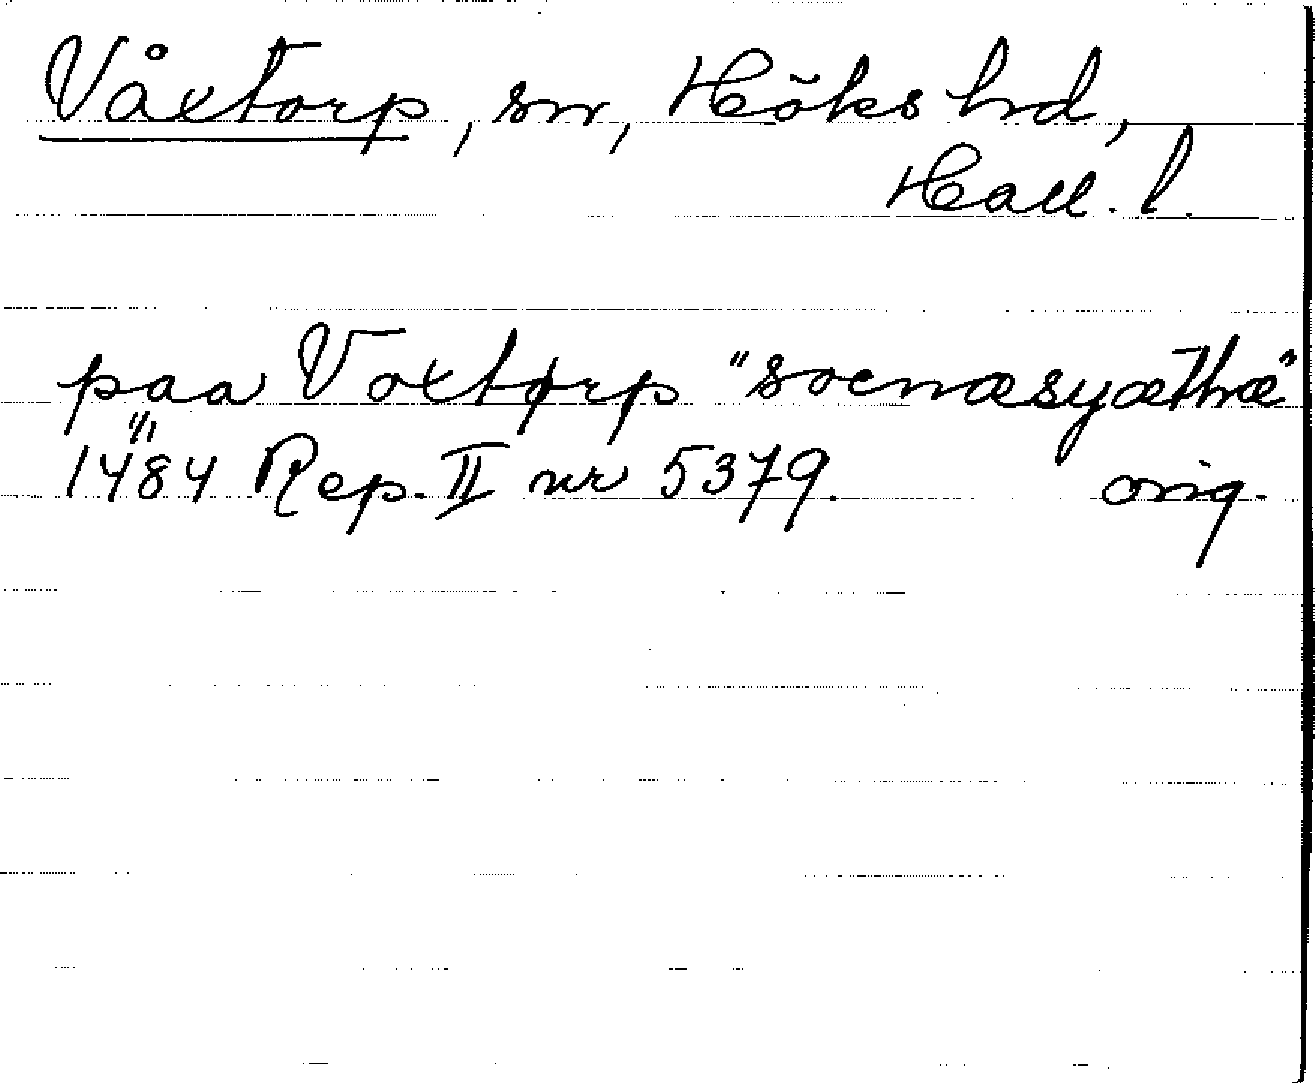 Våxtorp, sn, Höks hd,
Hall. l.
paa Voxtørp "socnæsyæthæ"
1484 Rep. II nr 5379. orig.